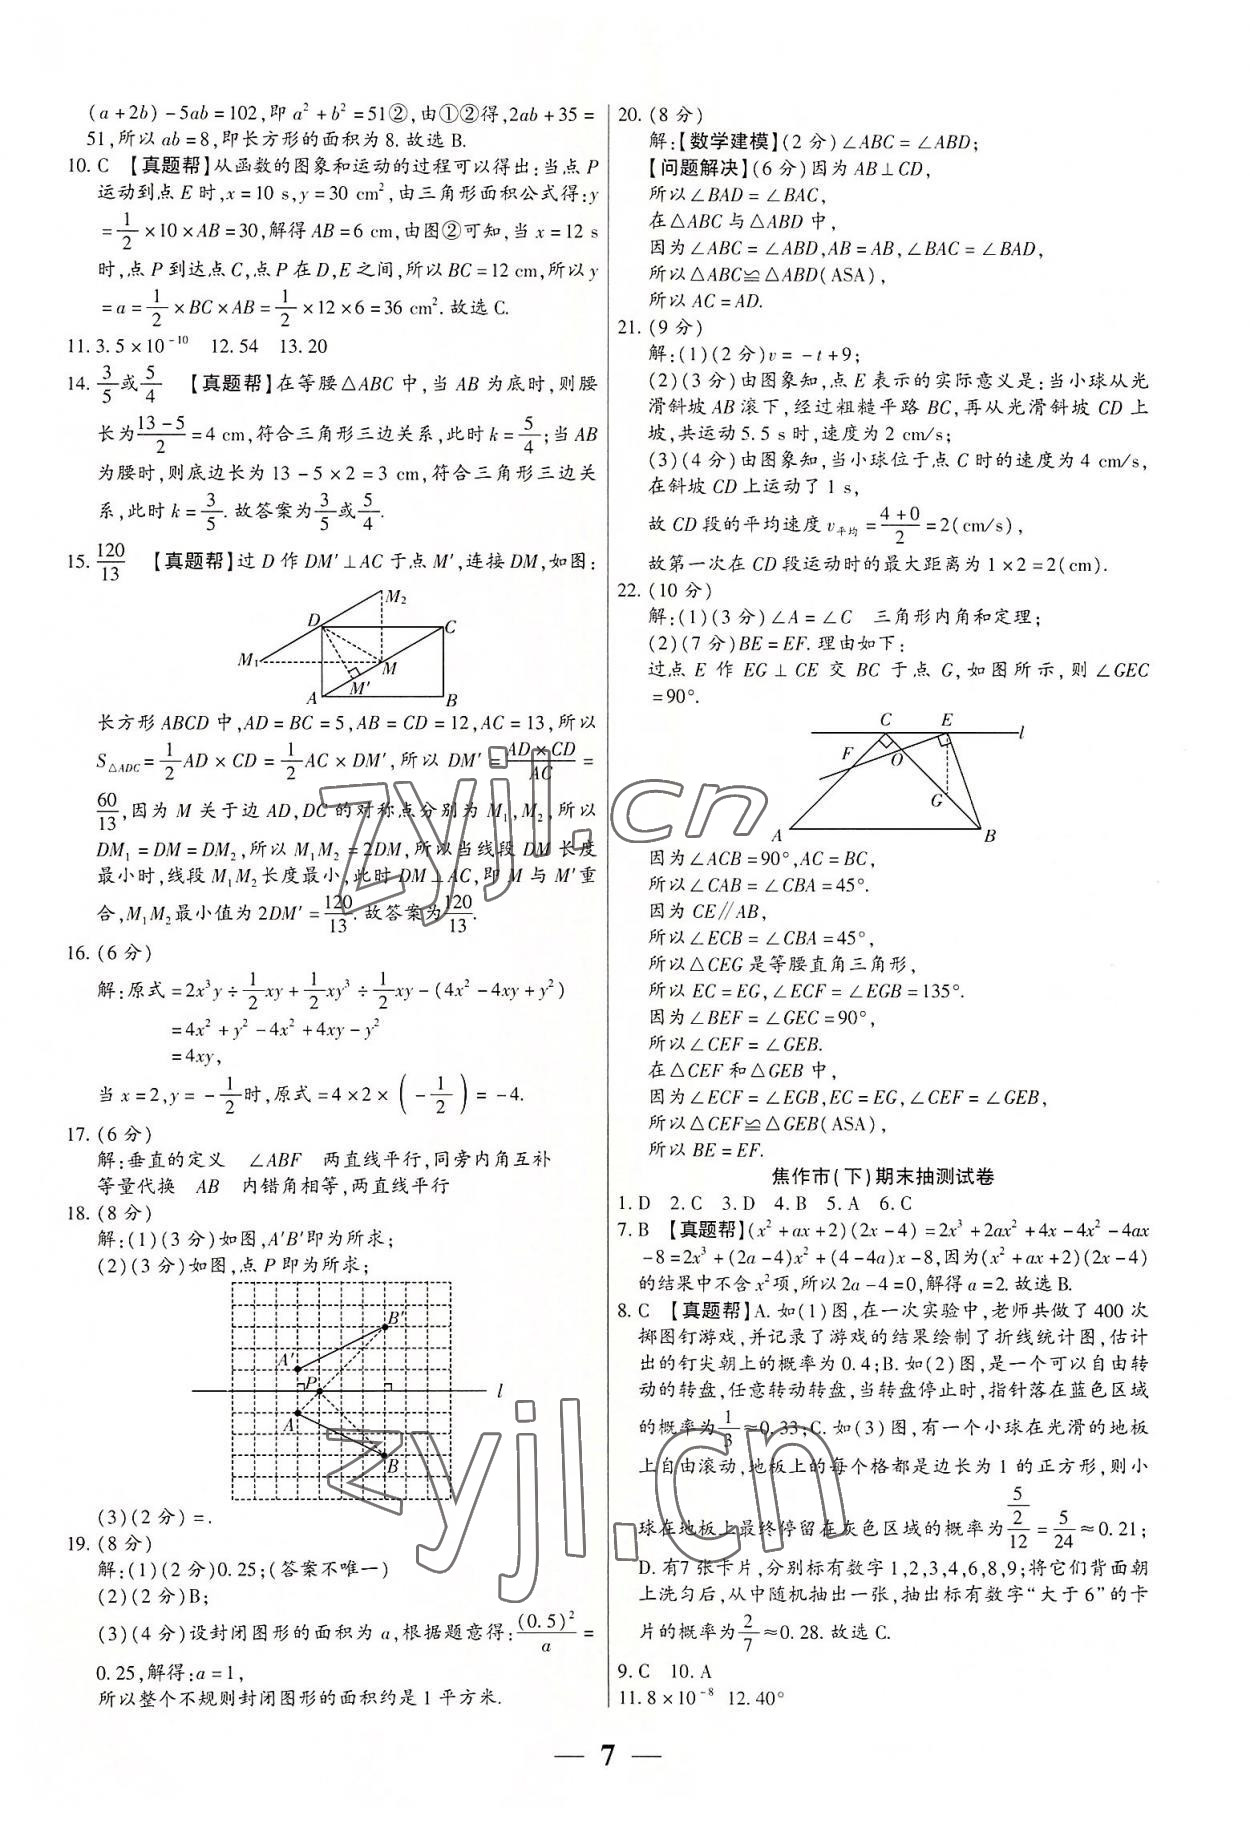 (a+2b)-5ab=102,即 a²+b²=51②,由①②得,2ab+35=
51,所以 ab=8,即长方形的面积为 8. 故选 B.
10. C 【真题帮】从函数的图象和运动的过程可以得出:当点 P
运动到点 E 时,x=10 s,y=30 cm²,由三角形面积公式得:y
=1/2×10×AB=30,解得 AB=6 cm,由图②可知,当 x=12 s
时,点 P 到达点 C,点 P 在 D,E 之间,所以 BC=12 cm,所以 y
=a=1/2×BC×AB=1/2×12×6=36 cm². 故选 C.
11. 3.5×10⁻¹⁰ 12. 54 13. 20
14. 3/5或5/4 【真题帮】在等腰△ABC 中,当 AB 为底时,则腰
长为(13-5)/2=4 cm,符合三角形三边关系,此时 k=5/4;当 AB
为腰时,则底边长为 13-5×2=3 cm,符合三角形三边关
系,此时 k=3/5. 故答案为3/5或5/4.
15. 120/13 【真题帮】过 D 作 DM′⊥AC 于点 M′,连接 DM,如图:
M₂
D C
M₁ M
M′
A B
长方形 ABCD 中,AD=BC=5,AB=CD=12,AC=13,所以
S△ADC=1/2AD×CD=1/2AC×DM′,所以 DM′=(AD×CD)/AC=
60/13,因为 M 关于边 AD,DC 的对称点分别为 M₁,M₂,所以
DM₁=DM=DM₂,所以 M₁M₂=2DM,所以当线段 DM 长度
最小时,线段 M₁M₂长度最小,此时 DM⊥AC,即 M 与 M′重
合,M₁M₂最小值为 2DM′=120/13. 故答案为120/13.
16. (6 分)
解:原式=2x³y÷1/2xy+1/2xy³÷1/2xy-(4x²-4xy+y²)
=4x²+y²-4x²+4xy-y²
=4xy,
当 x=2,y=-1/2时,原式=4×2×(-1/2)=-4.
17. (6 分)
解:垂直的定义 ∠ABF 两直线平行,同旁内角互补
等量代换 AB 内错角相等,两直线平行
18. (8 分)
解:(1)(3 分)如图,A′B′即为所求;
(2)(3 分)如图,点 P 即为所求;
B′
A′
P l
A
B
(3)(2 分)=.
19. (8 分)
解:(1)(2 分)0.25;(答案不唯一)
(2)(2 分)B;
(3)(4 分)设封闭图形的面积为 a,根据题意得:(0.5)²/a=
0.25,解得:a=1,
所以整个不规则封闭图形的面积约是 1 平方米.
20. (8 分)
解:【数学建模】(2 分)∠ABC=∠ABD;
【问题解决】(6 分)因为 AB⊥CD,
所以∠BAD=∠BAC,
在△ABC 与△ABD 中,
因为∠ABC=∠ABD,AB=AB,∠BAC=∠BAD,
所以△ABC≌△ABD(ASA),
所以 AC=AD.
21. (9 分)
解:(1)(2 分)v=-t+9;
(2)(3 分)由图象知,点 E 表示的实际意义是:当小球从光
滑斜坡 AB 滚下,经过粗糙平路 BC,再从光滑斜坡 CD 上
坡,共运动 5.5 s 时,速度为 2 cm/s;
(3)(4 分)由图象知,当小球位于点 C 时的速度为 4 cm/s,
在斜坡 CD 上运动了 1 s,
故 CD 段的平均速度 v平均=(4+0)/2=2(cm/s),
故第一次在 CD 段运动时的最大距离为 1×2=2(cm).
22. (10 分)
解:(1)(3 分)∠A=∠C 三角形内角和定理;
(2)(7 分)BE=EF. 理由如下:
过点 E 作 EG⊥CE 交 BC 于点 G,如图所示,则∠GEC
=90°.
C E l
F O
G
A B
因为∠ACB=90°,AC=BC,
所以∠CAB=∠CBA=45°.
因为 CE∥AB,
所以∠ECB=∠CBA=45°,
所以△CEG 是等腰直角三角形,
所以 EC=EG,∠ECF=∠EGB=135°.
因为∠BEF=∠GEC=90°,
所以∠CEF=∠GEB.
在△CEF 和△GEB 中,
因为∠ECF=∠EGB,EC=EG,∠CEF=∠GEB,
所以△CEF≌△GEB(ASA),
所以 BE=EF.
焦作市(下)期末抽测试卷
1. D 2. C 3. D 4. B 5. A 6. C
7. B 【真题帮】(x²+ax+2)(2x-4)=2x³+2ax²+4x-4x²-4ax
-8=2x³+(2a-4)x²+(4-4a)x-8,因为(x²+ax+2)(2x-4)
的结果中不含 x²项,所以 2a-4=0,解得 a=2. 故选 B.
8. C 【真题帮】A. 如(1)图,在一次实验中,老师共做了 400 次
掷图钉游戏,并记录了游戏的结果绘制了折线统计图,估计
出的钉尖朝上的概率为 0.4;B. 如(2)图,是一个可以自由转
动的转盘,任意转动转盘,当转盘停止时,指针落在蓝色区域
的概率为1/3≈0.33;C. 如(3)图,有一个小球在光滑的地板
上自由滚动,地板上的每个格都是边长为 1 的正方形,则小
球在地板上最终停留在灰色区域的概率为(5/2)/12=5/24≈0.21;
D. 有7 张卡片,分别标有数字 1,2,3,4,6,8,9;将它们背面朝
上洗匀后,从中随机抽出一张,抽出标有数字“大于 6”的卡
片的概率为2/7≈0.28. 故选 C.
9. C 10. A
11. 8×10⁻⁸ 12. 40°
— 7 —
zyjl.cn
zyjl.cn